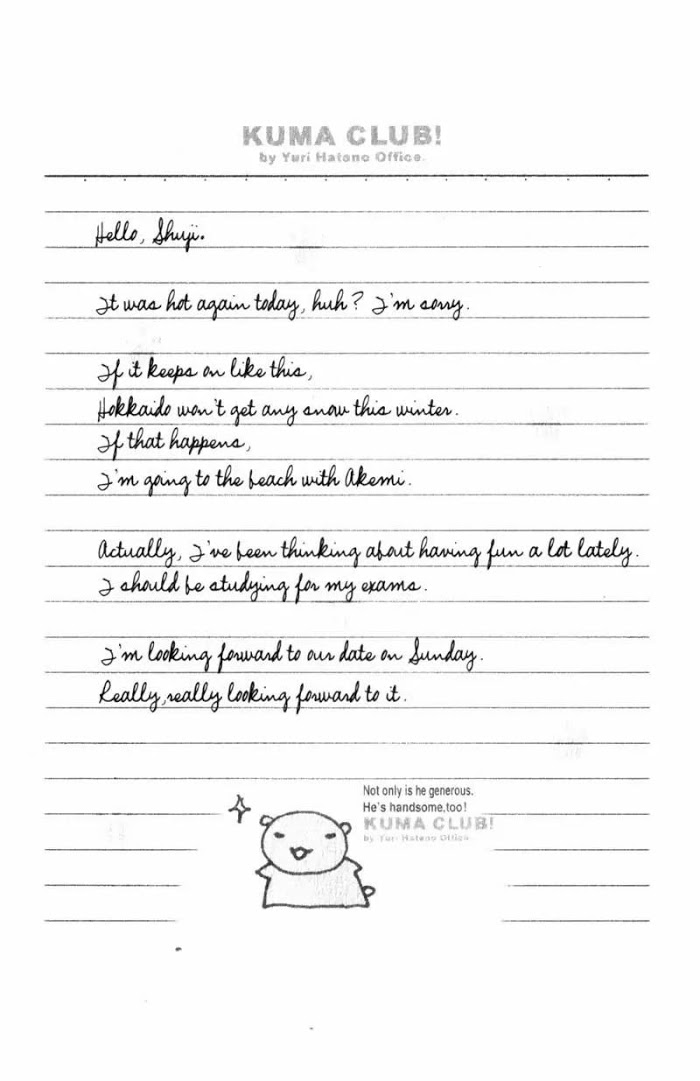 KUMA CLUB!
by Yuri Hatano Office.
Hello, Shuji.
It was hot again today, huh? I'm sorry.
If it keeps on like this,
Hokkaido won't get any snow this winter.
If that happens,
I'm going to the beach with Akemi.
Actually, I've been thinking about having fun a lot lately.
I should be studying for my exams.
I'm looking forward to our date on Sunday.
Really,really looking forward to it.
Not only is he generous.
He's handsome,too!
KUMA CLUB!
by Yuri Hatano Office.